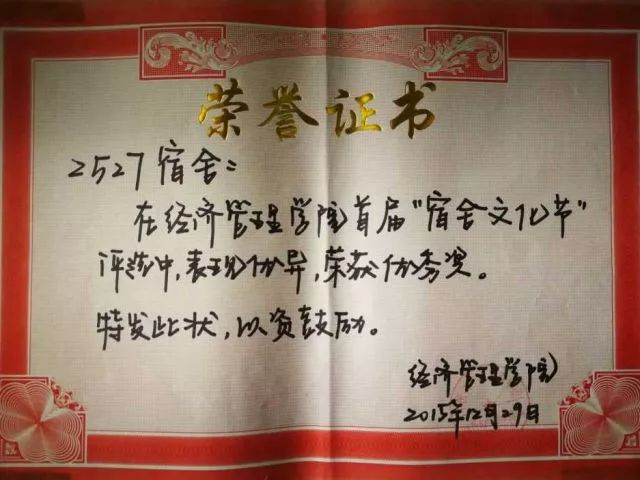 荣誉证书
2527宿舍:
在经济管理学院首届"宿舍文化节"
评选中,表现优异,荣获优秀奖。
特发此状,以资鼓励。
经济管理学院
2015年12月29日